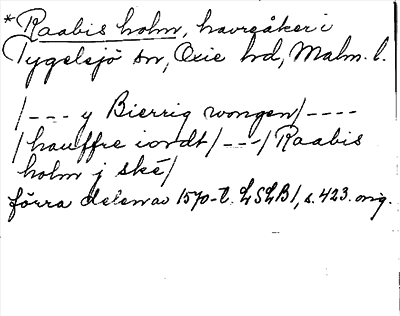 *Raabis holm, havreåker i
Tygelsjö sn, Oxie hd, Malm. l.
/--- y Bierrig wongen/----
/hauffre iordt/---/Raabis
holm j ské/
förra delen av 1570-t. LSLB1, s. 423. orig.